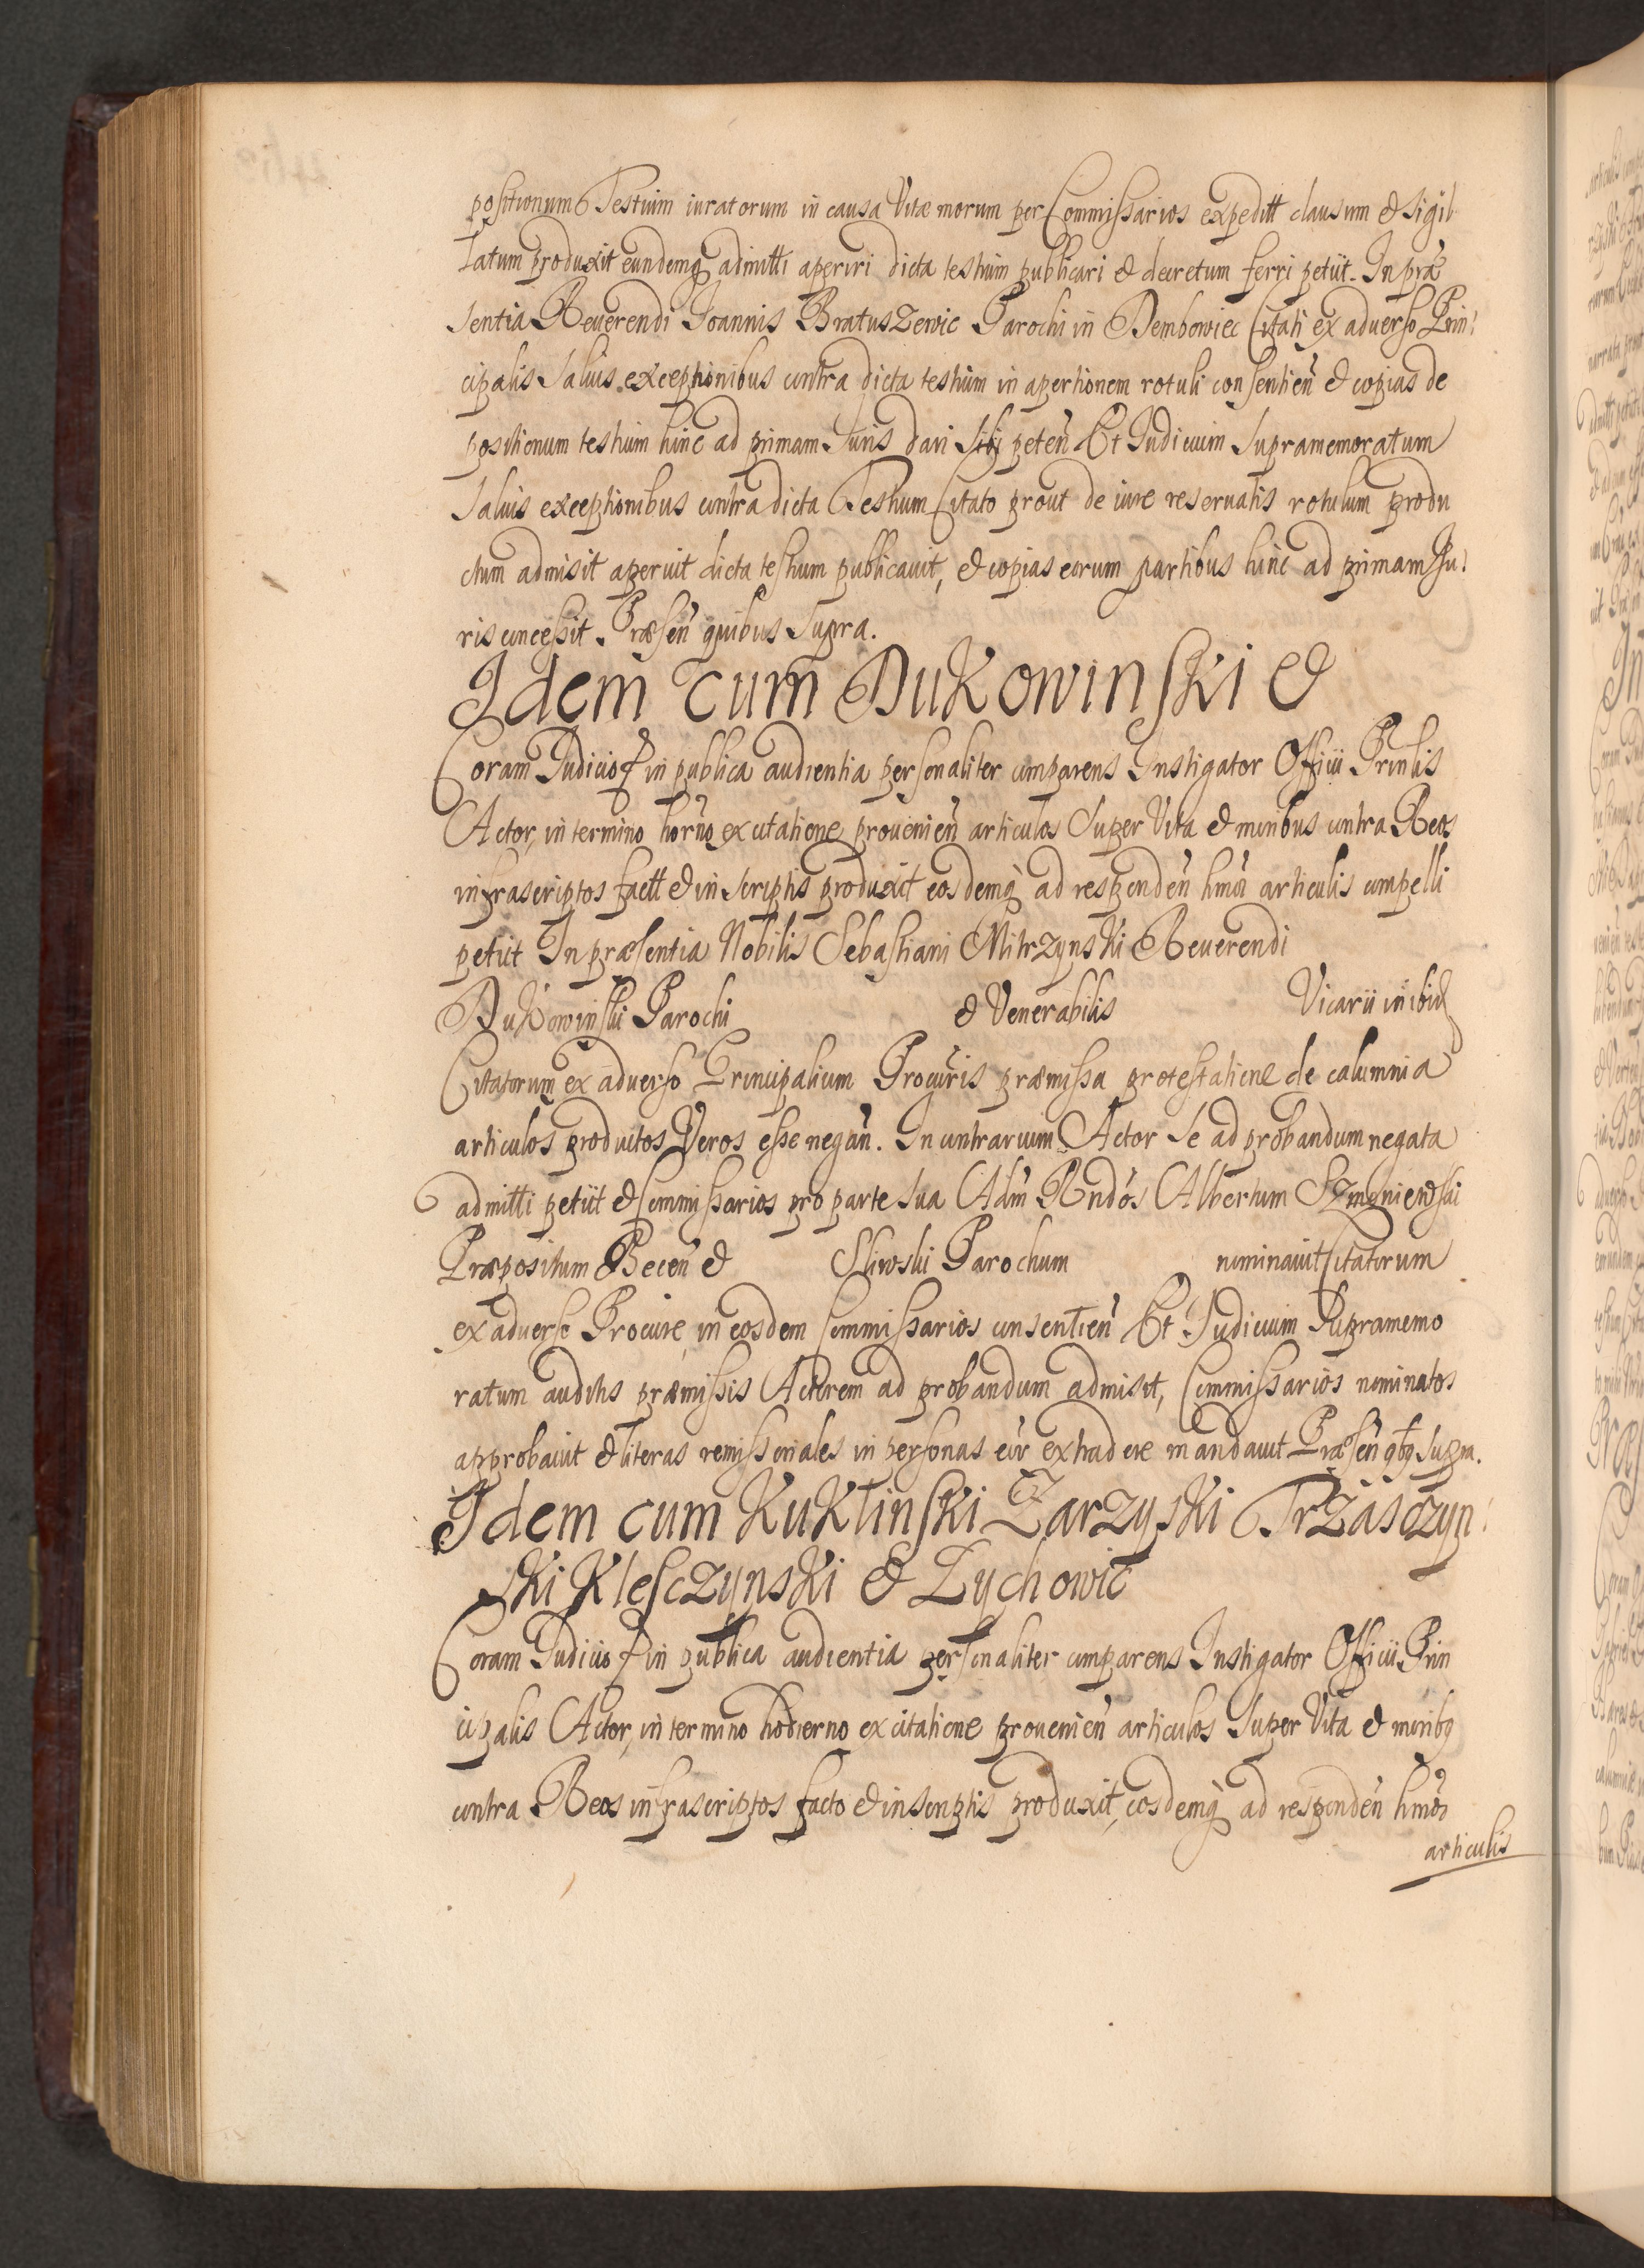 positionum Testium iuratorum in causa Vitæ morum per Commissarios expeditt clausum et sigil
latum produxit eundemq admitti aperiri dicta testium publicari et decretum ferri petiit. In præ
sentia Reuerendi Joannis Bratuszewic Parochi in Dembowiec Citati ex aduerso Prin:
cipalis Saluis exceptionibus contra dicta testium in apertionem rotuli consentien̄ et copias de
positionum testium hinc ad primam Iuris dari sibi peten̄ Et Iudicium Supramemoratum
Saluis exceptionibus contra dicta Testium Citato prout de iure reseruatis rotulum produ
ctum admisit aperuit dicta testium publicauit, et copias eorum partibus hinc ad primam Ju:
ris concessit. Præsen̄ quibus Supra.
Idem cum Bukowinski et
Coram Judicio in publica audientia personaliter comparens Instigator Officii Prinlis
Actor, in termino horno ex citatione prouenien̄ articulos Super Vita et moribus contra Reos
infrascriptos factt et in scriptis produxit eosdemq ad responden̄ hmōi articulis compelli
petiit In præsentia Nobilis Sebastiani Mitrzynski Reuerendi
Bukowinski Parochi et Venerabilis Vicarii inibid
Citatorum ex aduerso Principalium Procuris præmissa protestatione de calumnia
articulos productos Veros esse negan̄. In contrarium Actor se ad probandum negata
admitti petiit et Commissarios pro parte sua Adm̄ Rndos Albertum
Præpositum Becen̄ et Sliwski Parochum nominauit Citatorum
ex aduerso Procure, in eosdem Commissarios consentien̄ Et Judicium Supramemo
ratum auditis præmissis Actorem ad probandum admisit, Commissarios nominatos
approbauit et literas remissoriales in personas eor extradere mandauit Præsen̄ qbq supra.
Idem cum Kuklinski Zarzyski Trżasczyn:
ski Klesczynski et Zychowic
Coram Judicio in publica audientia personaliter comparens Instigator Officii Prin
cipalis Actor, in termino hodierno ex citatione prouenien̄ articulos Super Vita et moribq
contra Reos infrascriptos facto et in scriptis produxit, eosdemq ad responden̄ hmōi
articulis